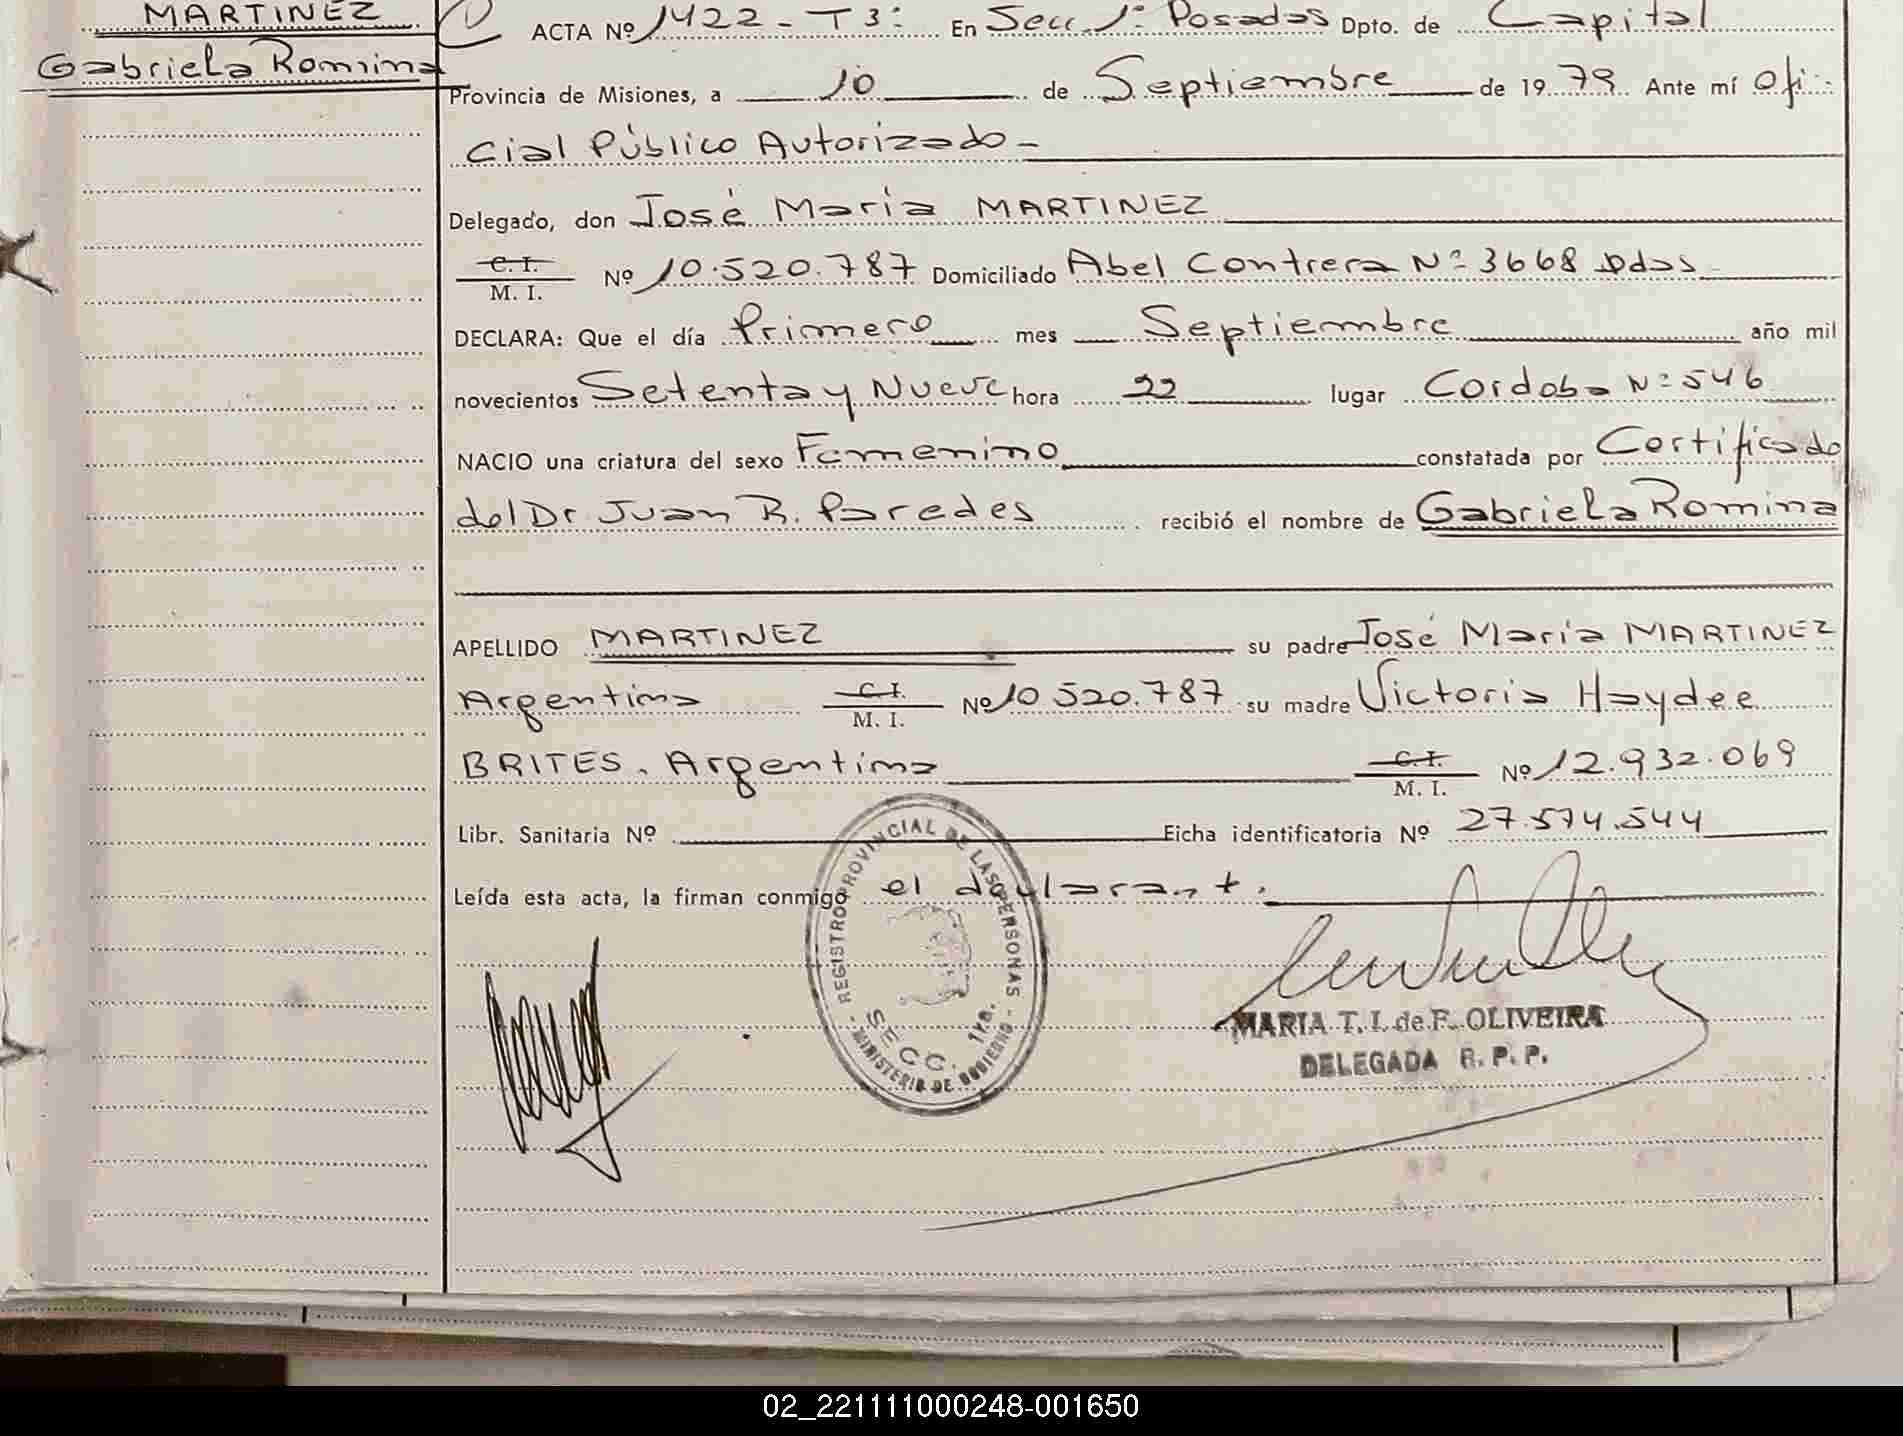 MARTINEZ
Gabriela Romina
ACTA Nº 1422 - T3: En Secc. 1ª Posadas Dpto. de Capital
Provincia de Misiones, a 10 de Septiembre de 1979 Ante mí Ofi-
cial Público Autorizado -
Delegado, don José María MARTINEZ
C. I.
M. I. Nº 10.520.787 Domiciliado Abel Contrera Nº 3668 Pdas
DECLARA: Que el día Primero mes Septiembre año mil
novecientos Setenta y Nueve hora 22 lugar Cordoba Nº 546
NACIO una criatura del sexo Femenino constatada por Certificado
del Dr. Juan R. Paredes recibió el nombre de Gabriela Romina
APELLIDO MARTINEZ su padre José María MARTINEZ
Argentina C. I.
M. I. Nº 10.520.787 su madre Victoria Haydee
BRITES. Argentina C. I.
M. I. Nº 12.932.069
Libr. Sanitaria Nº Ficha identificatoria Nº 27.574.544
Leída esta acta, la firman conmigo el declarante.
REGISTRO PROVINCIAL DE LAS PERSONAS
SECC. 1ra.
- MINISTERIO DE GOBIERNO -
MARIA T. I. de F. OLIVEIRA
DELEGADA R. P. P.
02_221111000248-001650